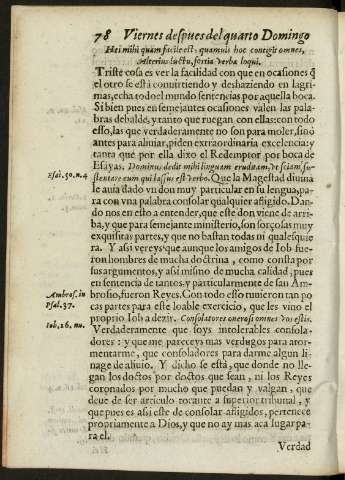 78 Viernes despues del quarto Domingo
Hei mihi quàm facile est; quamuis hoc contigit omnes,
Alterius luctu, fortia verba loqui.
Triste cosa es ver la facilidad con que en ocasiones q̃
el otro se està conuirtiendo y deshaziendo en lagri-
mas, echa todo el mundo sentencias por aquella boca.
Si bien pues en semejantes ocasiones valen las pala-
bras debalde, y tanto que ruegan con ellas: con todo
esso, las que verdaderamente no son para moler, sinò
antes para aliuiar, piden extraordinaria excelencia: y
tanta que por ella dixo el Redemptor por boca de
Esayas. Dominus dedit mihi linguam eruditam, vt sciam su-
Psal.50.n.4
stentare eum qui lassus est verbo. Que la Magestad diuina
le auia dado vn don muy particular en su lengua, pa-
ra con vna palabra consolar qualquier afligido. Dan-
do nos en esto a entender, que este don viene de arri-
ba, y que para semejante ministerio, son forçosas muy
exquisitas partes, y que no bastan todas ni qualesquie
ra. Y assi vereys que aunque los amigos de Iob fue-
ron hombres de mucha doctrina, como consta por
sus argumentos, y assi mismo de mucha calidad, pues
en sentencia de tantos, y particularmente de san Am-
Ambros. in
Psal.37.
brosio, fueron Reyes. Con todo esso tunieron tan po
cas partes para este loable exercicio, que les vino el
proprio Iob a dezir. Consolatores onerosi omnes vos estis.
Iob.16.nu.
Verdaderamente que soys intolerables consola-
dores: y que me pareceys mas verdugos para ator-
mentarme, que consoladores para darme algun li-
nage de aliuio. Y dicho se està, que donde no lle-
gan los doctos por doctos que sean, ni los Reyes
coronados por mucho que puedan y valgan, que
deue de ser articulo tocante a superior tribunal, y
que pues es assi este de consolar afligidos, pertenece
propriamente a Dios, y que no ay mas aca lugar pa-
ra el.
Verdad